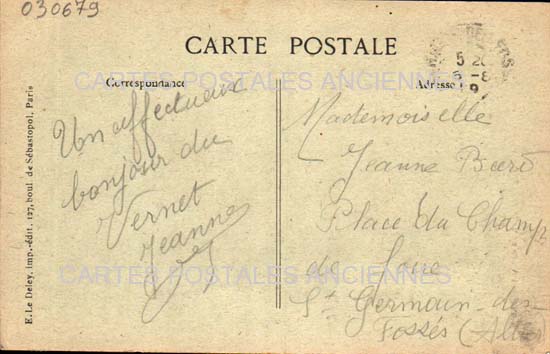 030679
CARTE POSTALE
CARTES POSTALES ANCIENNES
Correspondance
Adresse
Un affectueux
bonjour du
Vernet
Jeanne
Mademoiselle
Jeanne
Place du Champ
de Foire
St Germain-des-
Fossés (Allier)
CARTES POSTALES ANCIENNES
E. Le Deley, imp.-édit. 127, boul. de Sébastopol, Paris